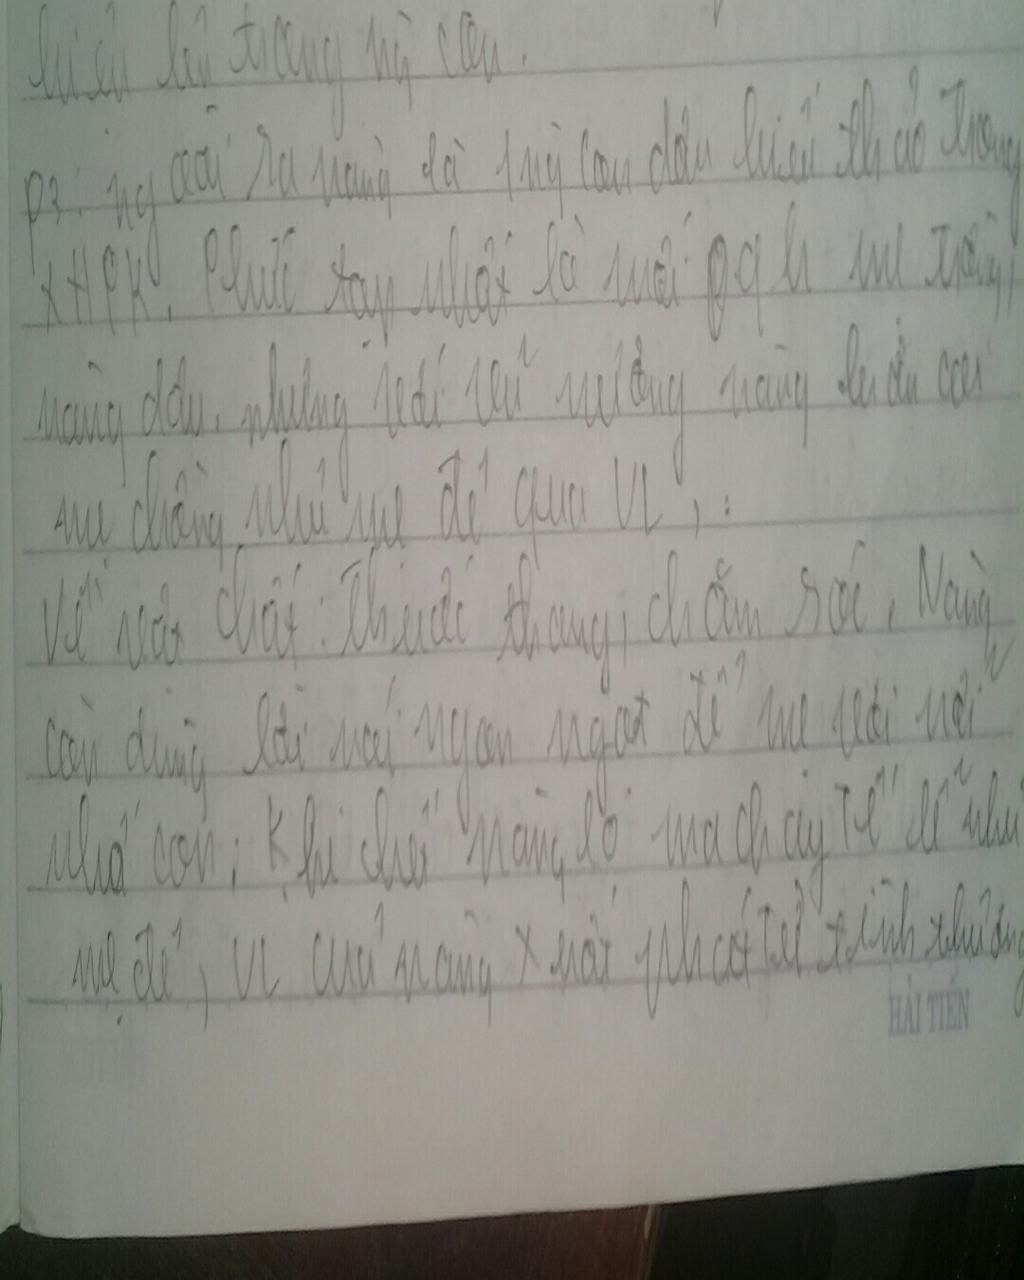 trong
P3: ngoài ra nàng là 1 ng con dâu hiếu thảo trong
XHPK. Phức tạp nhất là mối qh mẹ chồng,
nàng dâu, nhưng với Vũ Nương nàng luôn coi
mẹ chồng như mẹ đẻ qua VC, :
Về vật chất: Thuốc thang, chăm sóc, Nàng
còn dùng lời nói ngon ngọt để mẹ với nỗi
nhớ con; Khi chết nàng lo ma chay tế lễ như
mẹ đẻ, VC của nàng xuất phát từ tình thương
HẢI TIẾN